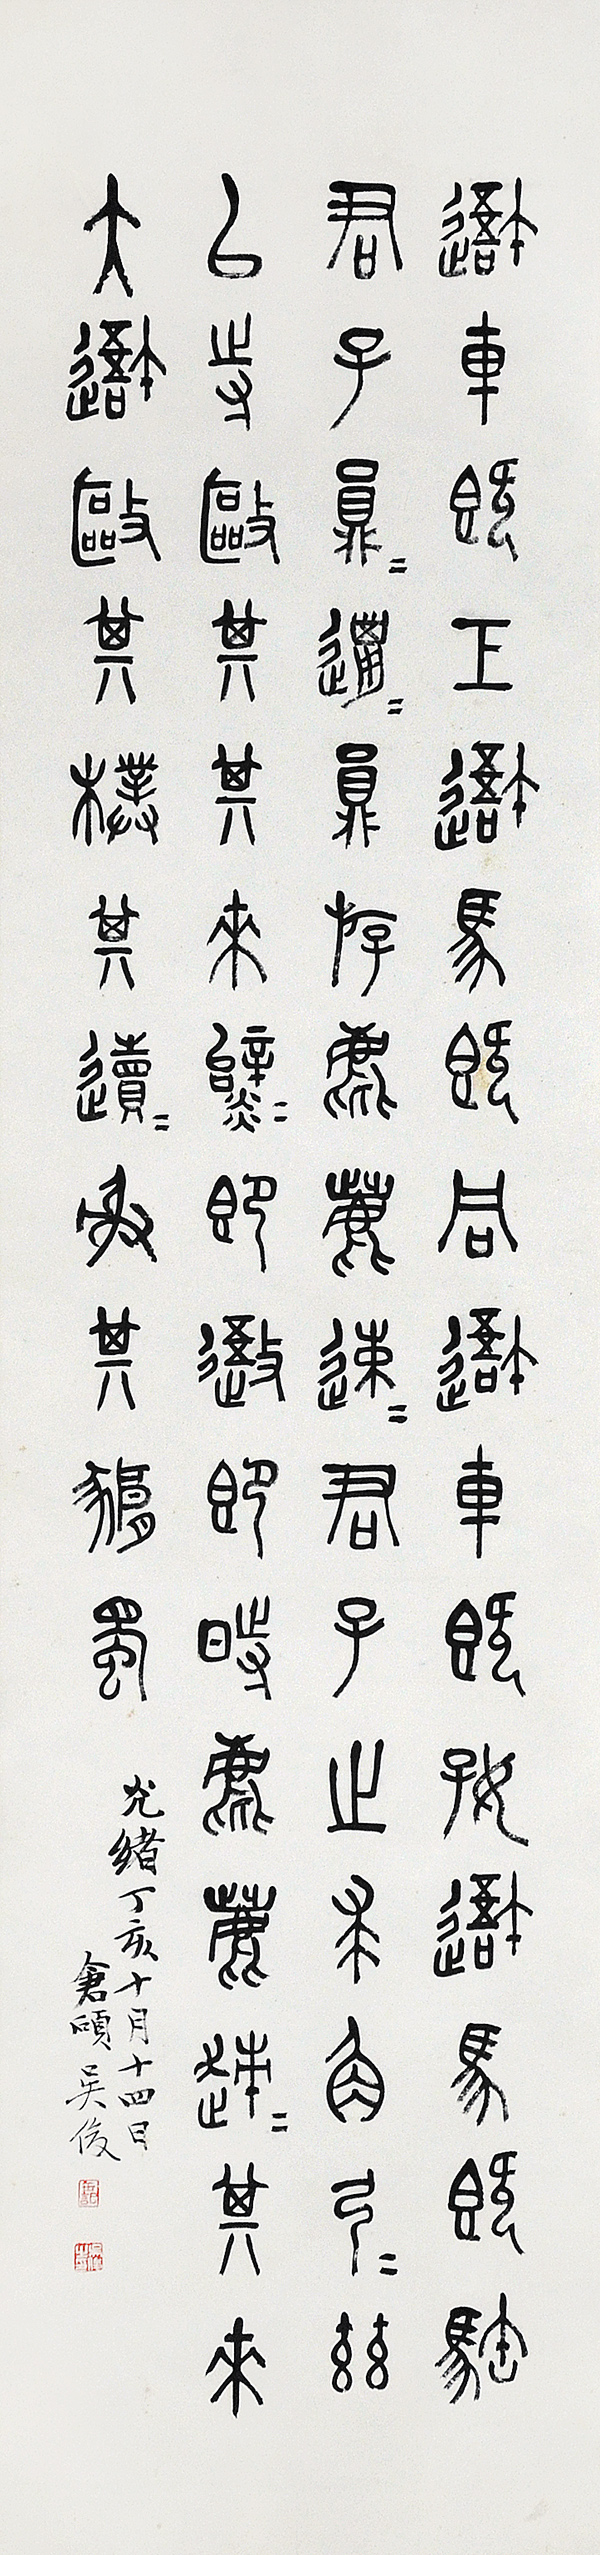 䢒車既工䢒馬既同䢒車既好䢒馬既𩣡
君子員=邋=員斿麀鹿速=君子之求角弓=茲
以寺敺其其來即禦即時麀鹿趚=其來
大䢒敺其樸其遺=射其豜蜀
光緒丁亥十月十四日
倉碩吳俊